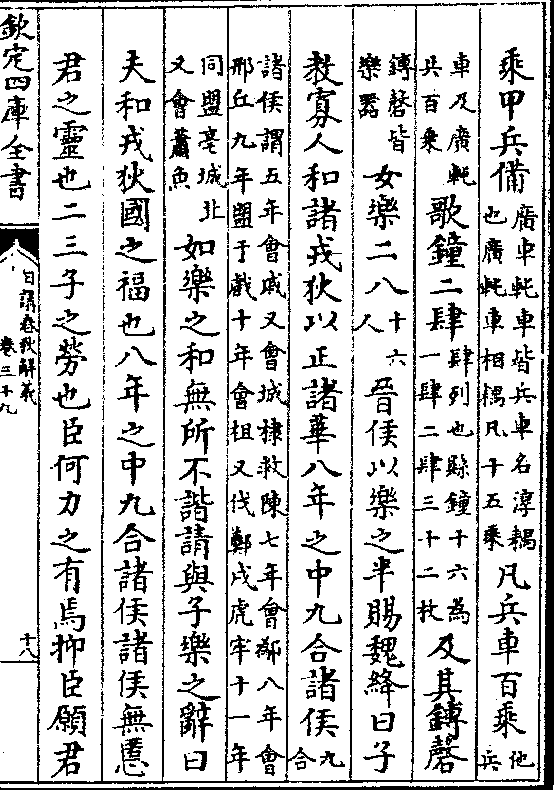 乘甲兵備廣車軘車皆兵車名淳耦也廣軘車相耦凡十五乘凡兵車百乘他兵
車及廣軘共百乘歌鐘二肆肆列也縣鐘十六為一肆二肆三十二枚及其鎛磬
鎛磬皆樂器女樂二八十六人晉侯以樂之半賜魏絳曰子
教寡人和諸戎狄以正諸華八年之中九合諸侯九合
諸侯謂五年會戚又會城棣救陳七年會鄬八年會邢丘九年盟于戲十年會柤又伐鄭戍虎牢十一年
同盟亳城北又會蕭魚如樂之和無所不諧請與子樂之辭曰
夫和戎狄國之福也八年之中九合諸侯諸侯無慝
君之靈也二三子之勞也臣何力之有焉抑臣願君
欽定四庫全書
日講春秋解義
卷三十九
十八